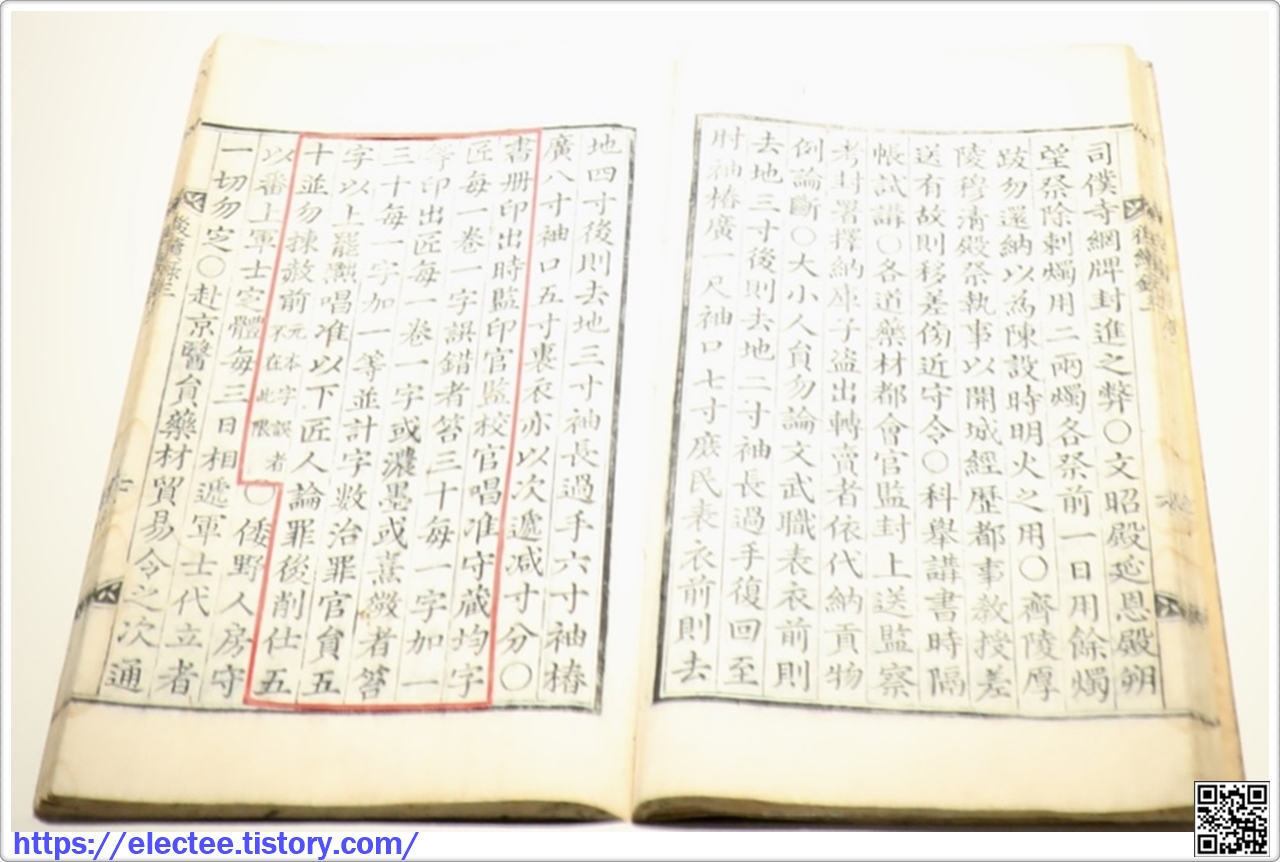 司僕寺網牌封進之弊○文昭殿延恩殿朔
望祭除刺燭用二兩燭各祭前一日用餘燭
跋勿還納以為陳設時明火之用○齊陵厚
陵穆淸殿祭執事以開城經歷都事敎授差
送有故則移差傍近守令○科舉講書時隔
帳試講○各道藥材都會官監封上送監察
考封署擇納庫子盜出轉賣者依代納貢物
例論斷○大小人貟勿論文武職表衣前則
去地三寸後則去地二寸袖長過手復回至
肘袖樁廣一尺袖口七寸庶民表衣前則去
地四寸後則去地三寸袖長過手六寸袖樁
廣八寸袖口五寸裏衣亦以次遞减寸分○
書册印出時監印官監校官唱准守藏均字
匠每一卷一字誤錯者笞三十每一字加一
等印出匠每一卷一字或濃墨或熹微者笞
三十每一字加一等並計字數治罪官貟五
字以上罷黜唱准以下匠人論罪後削仕五
十並勿揀赦前元本字誤者不在此限○倭野人房守
以番上軍士定體每三日相遞軍士代立者
一切勿定○赴京醫貟藥材貿易令之次通
後續錄三
https://electee.tistory.com/